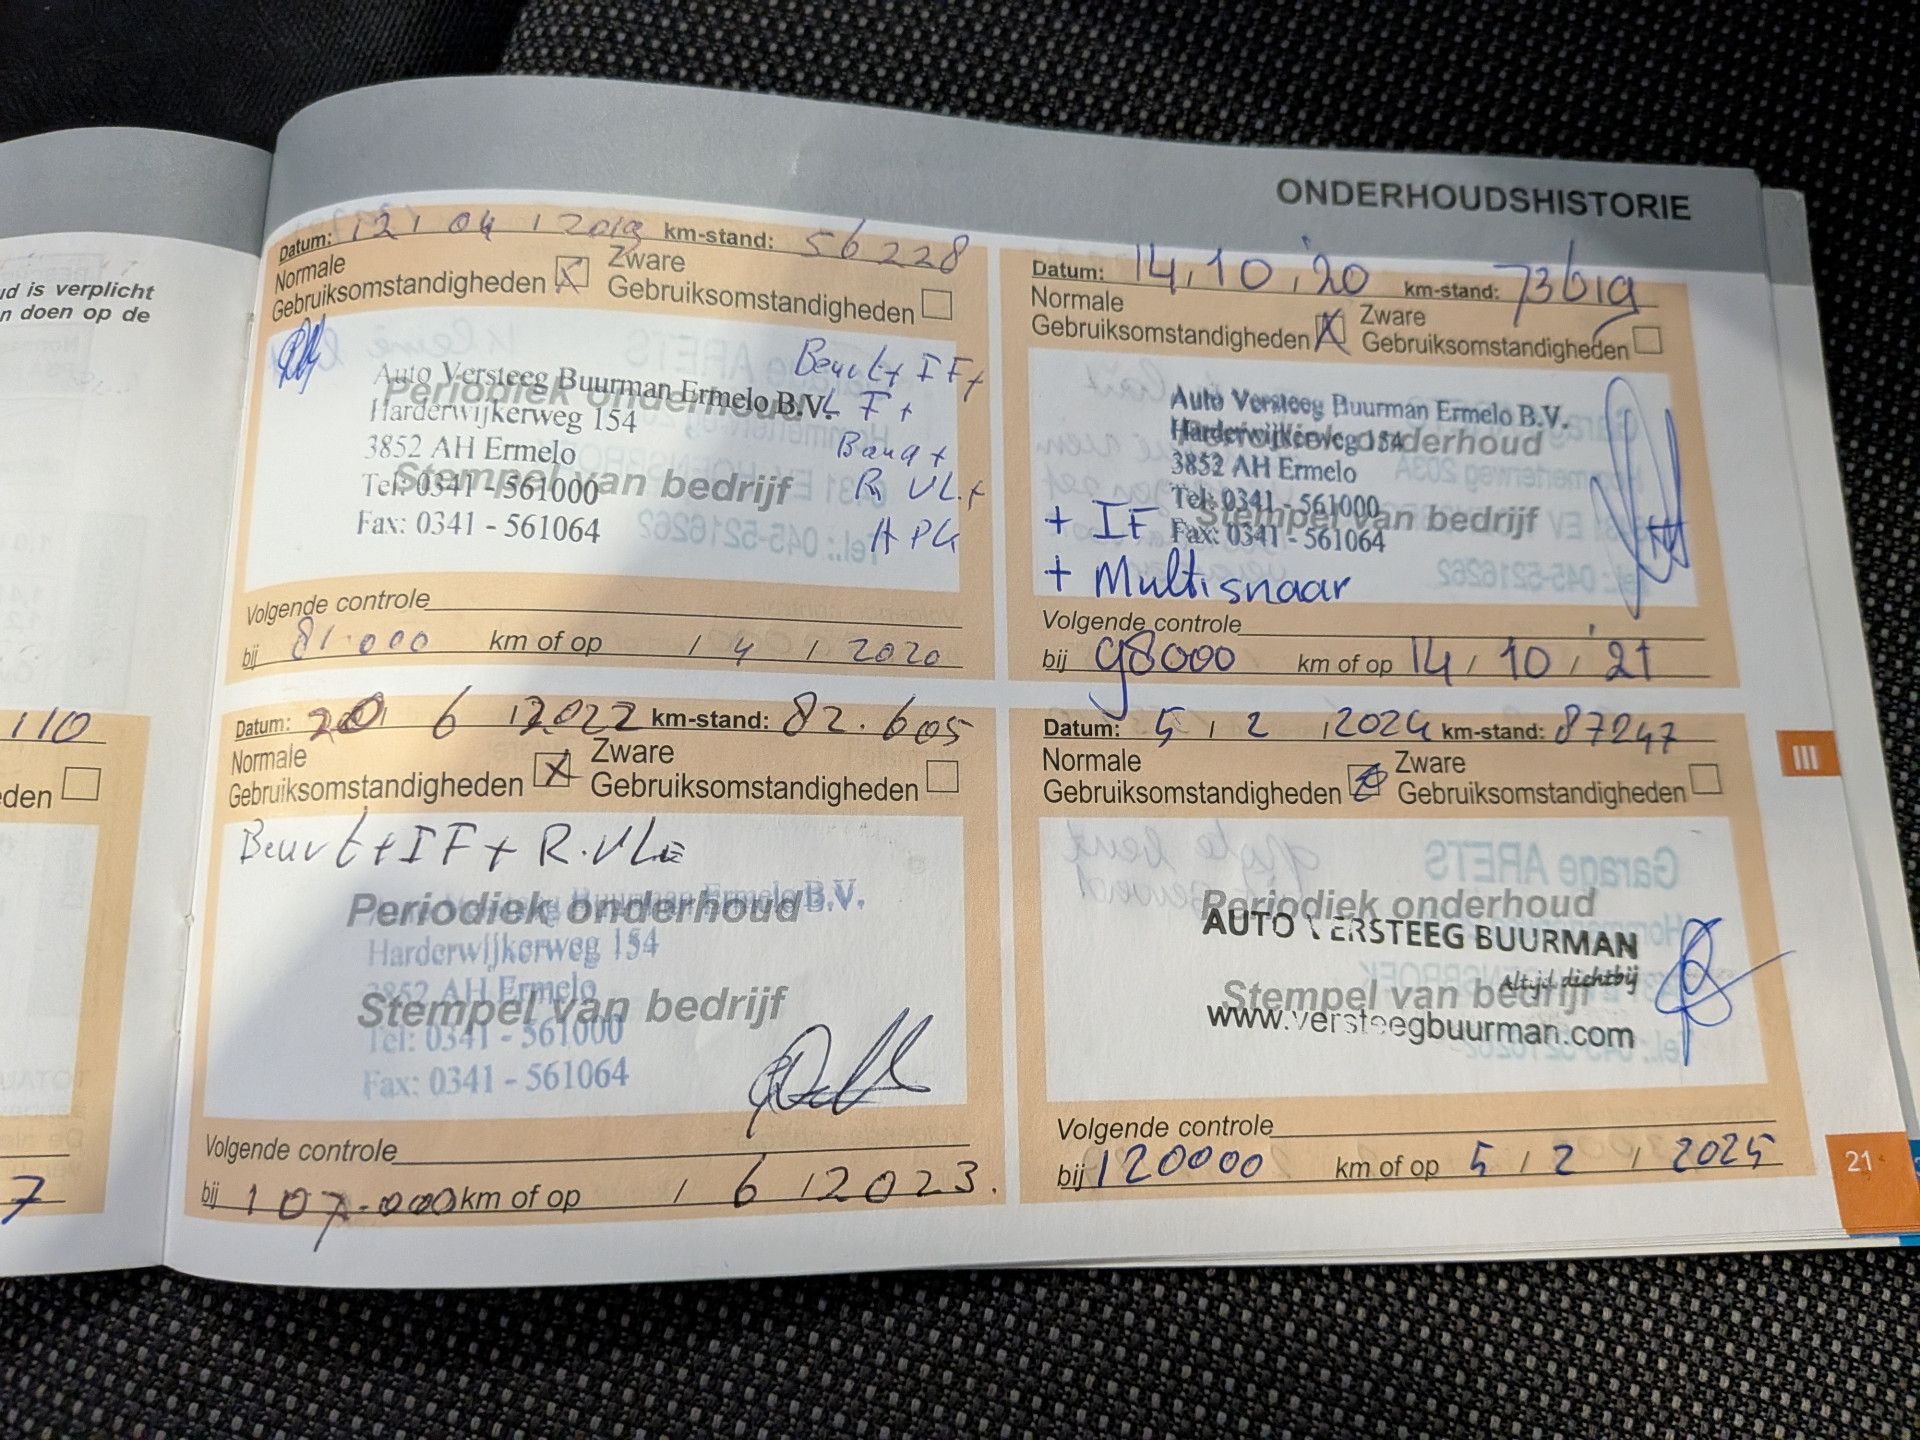 ONDERHOUDSHISTORIE
d is verplicht
n doen op de
110
den
7
Datum: 12 / 04 / 2019 km-stand: 56228
Normale
Gebruiksomstandigheden X Zware
Gebruiksomstandigheden
Periodiek onderhoud
Stempel van bedrijf
Auto Versteeg Buurman Ermelo B.V.
Harderwijkerweg 154
3852 AH Ermelo
Tel: 0341 - 561000
Fax: 0341 - 561064
Beurt + IF +
LF +
R VL. +
Volgende controle
bij 81.000 km of op / 4 / 2020
Datum: 14 / 10 / '20 km-stand: 73619
Normale
Gebruiksomstandigheden X Zware
Gebruiksomstandigheden
Periodiek onderhoud
Stempel van bedrijf
Auto Versteeg Buurman Ermelo B.V.
Harderwijkerweg 154
3852 AH Ermelo
Tel: 0341 - 561000
Fax: 0341 - 561064
+ IF
+ Multisnaar
Volgende controle
bij 98000 km of op 14 / 10 / '21
Datum: 20 / 6 / 2022 km-stand: 82.605
Normale
Gebruiksomstandigheden X Zware
Gebruiksomstandigheden
Beurt + IF + R.VLE
Periodiek onderhoud
Stempel van bedrijf
Buurman Ermelo B.V.
Harderwijkerweg 154
3852 AH Ermelo
Tel: 0341 - 561000
Fax: 0341 - 561064
Volgende controle
bij 107.000 km of op / 6 / 2023.
Datum: 5 / 2 / 2024 km-stand: 87247
Normale
Gebruiksomstandigheden Zware
Gebruiksomstandigheden
Periodiek onderhoud
Stempel van bedrijf
AUTO VERSTEEG BUURMAN
Altijd dichtbij
www.versteegbuurman.com
Volgende controle
bij 120000 km of op 5 / 2 / 2025
III
21